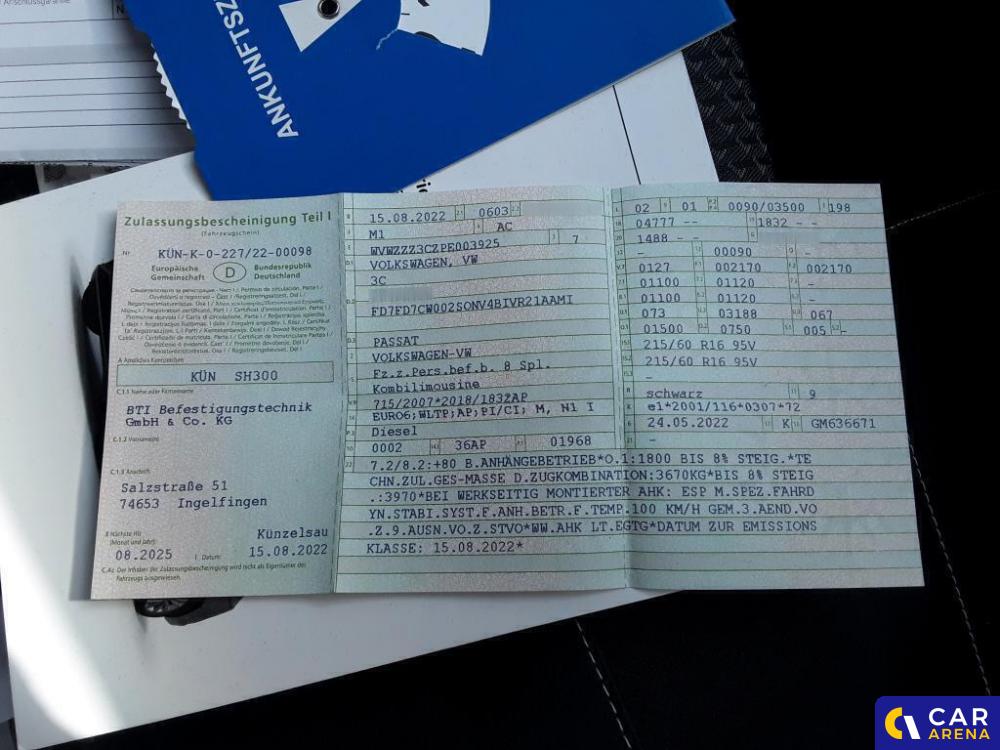 Anschlussgarantie
N
ANKUNFTSZ
Zulassungsbescheinigung Teil I
(Fahrzeugschein)
Nr KÜN-K-0-227/22-00098
Europäische Gemeinschaft D Bundesrepublik Deutschland
A Amtliches Kennzeichen
KÜN SH300
C.1.1 Name oder Firmenname
BTI Befestigungstechnik
GmbH & Co. KG
C.1.2 Vorname(n)
C.1.3 Anschrift
Salzstraße 51
74653 Ingelfingen
Nächste HU
(Monat und Jahr)
08.2025
Künzelsau
Datum: 15.08.2022
C.4c Der Inhaber der Zulassungsbescheinigung wird nicht als Eigentümer des
Fahrzeugs ausgewiesen.
B 15.08.2022 2.1 0603 2.2
M1 AC
WVWZZZ3CZPE003925 3 7
VOLKSWAGEN, VW
3C
FD7FD7CW002SONV4BIVR21AAMI
PASSAT
VOLKSWAGEN-VW
Fz.z.Pers.bef.b. 8 Spl.
Kombilimousine
715/2007*2018/1832AP
EURO6;WLTP;AP;PI/CI; M, N1 I
Diesel
0002 36AP 01968
02 01 0090/03500 198
04777 -- 1832 --
1488 - -
- 00090 -
0127 002170 002170
01100 01120
01100 01120
073 03188 067
01500 0750 005 -
215/60 R16 95V
215/60 R16 95V
-
schwarz 9
e1*2001/116*0307*72
24.05.2022 K GM636671
-
22 7.2/8.2:+80 B.ANHÄNGEBETRIEB*O.1:1800 BIS 8% STEIG.*TE
CHN.ZUL.GES-MASSE D.ZUGKOMBINATION:3670KG*BIS 8% STEIG
.:3970*BEI WERKSEITIG MONTIERTER AHK: ESP M.SPEZ.FAHRD
YN.STABI.SYST.F.ANH.BETR.F.TEMP.100 KM/H GEM.3.AEND.VO
.Z.9.AUSN.VO.Z.STVO*WW.AHK LT.EGTG*DATUM ZUR EMISSIONS
KLASSE: 15.08.2022*
CAR
ARENA